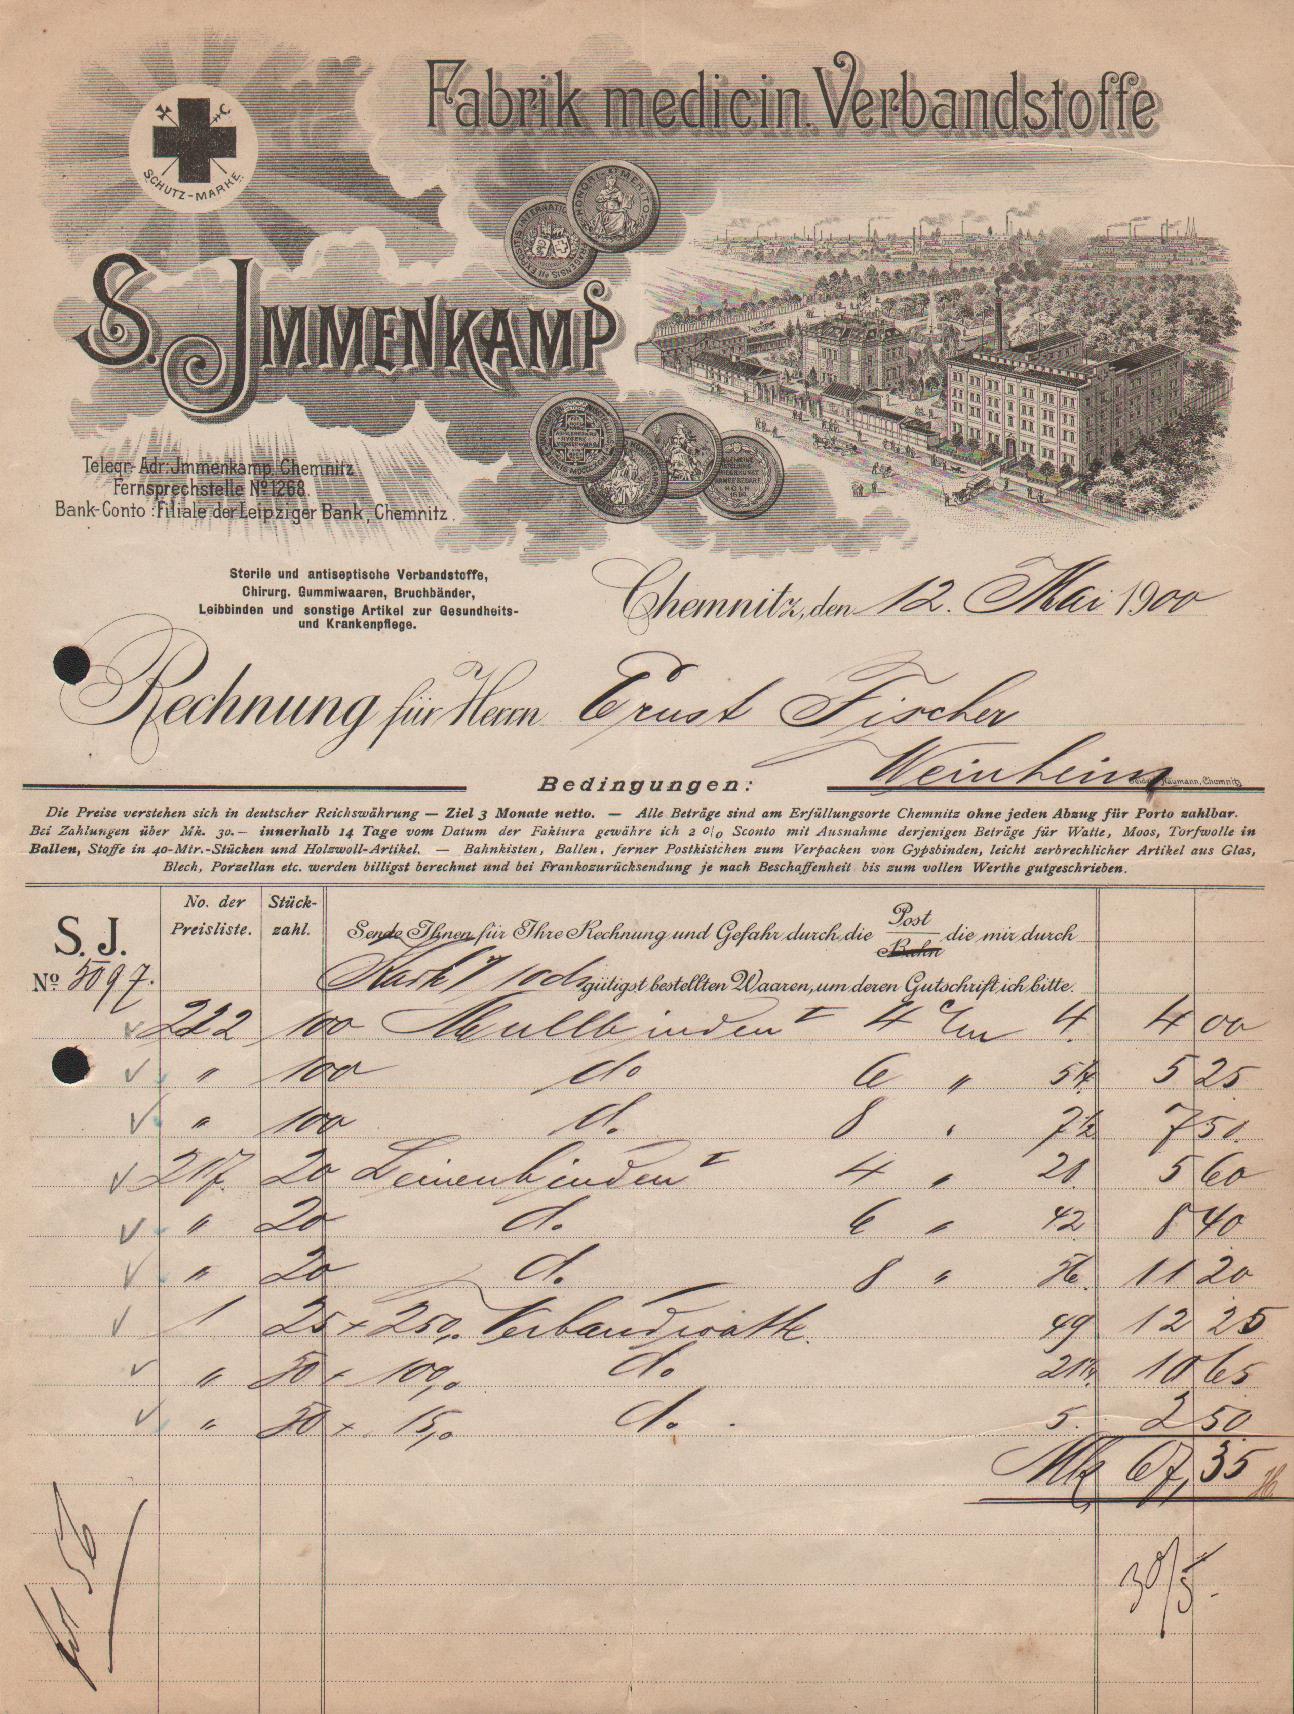 Fabrik medicin. Verbandstoffe
SCHUTZ-MARKE.
HONORI MERITO
S. JMMENKAMP
Telegr.-Adr: Jmmenkamp Chemnitz
Fernsprechstelle No 1268.
Bank-Conto: Filiale der Leipziger Bank, Chemnitz.
Sterile und antiseptische Verbandstoffe,
Chirurg. Gummiwaaren, Bruchbänder,
Leibbinden und sonstige Artikel zur Gesundheits-
und Krankenpflege.
Chemnitz, den 12. Mai 1900
Rechnung für Herrn Ernst Fischer
Weinheim
Naumann, Chemnitz
Bedingungen:
Die Preise verstehen sich in deutscher Reichswährung — Ziel 3 Monate netto. — Alle Beträge sind am Erfüllungsorte Chemnitz ohne jeden Abzug für Porto zahlbar.
Bei Zahlungen über Mk. 30.— innerhalb 14 Tage vom Datum der Faktura gewähre ich 2 % Sconto mit Ausnahme derjenigen Beträge für Watte, Moos, Torfwolle in
Ballen, Stoffe in 40-Mtr.-Stücken und Holzwoll-Artikel. — Bahnkisten, Ballen, ferner Postkistchen zum Verpacken von Gypsbinden, leicht zerbrechlicher Artikel aus Glas,
Blech, Porzellan etc. werden billigst berechnet und bei Frankozurücksendung je nach Beschaffenheit bis zum vollen Werthe gutgeschrieben.
S. J.
No. 5097.
No. der Preisliste.
Stück-zahl.
Sende Ihnen für Ihre Rechnung und Gefahr durch die Post Bahn die mir durch
gütigst bestellten Waaren, um deren Gutschrift ich bitte.
222 100 Mullbinden I 4 c/m 4. 4 00
" 100 do 6 " 5 1/4 5 25
" 100 d. 8 " 7 1/2 7 50
217. 20 Leinenbinden I 4 " 28 5 60
" 20 d. 6 " 42 8 40
" 20 d. 8 " 56 11 20
1 25 × 250,0 Verbandwatte. 49 12 25
" 50 × 100,0 d. 10 65
" 50 × 15,0 d. 5. 2 50
Mk 67,35
30/5.